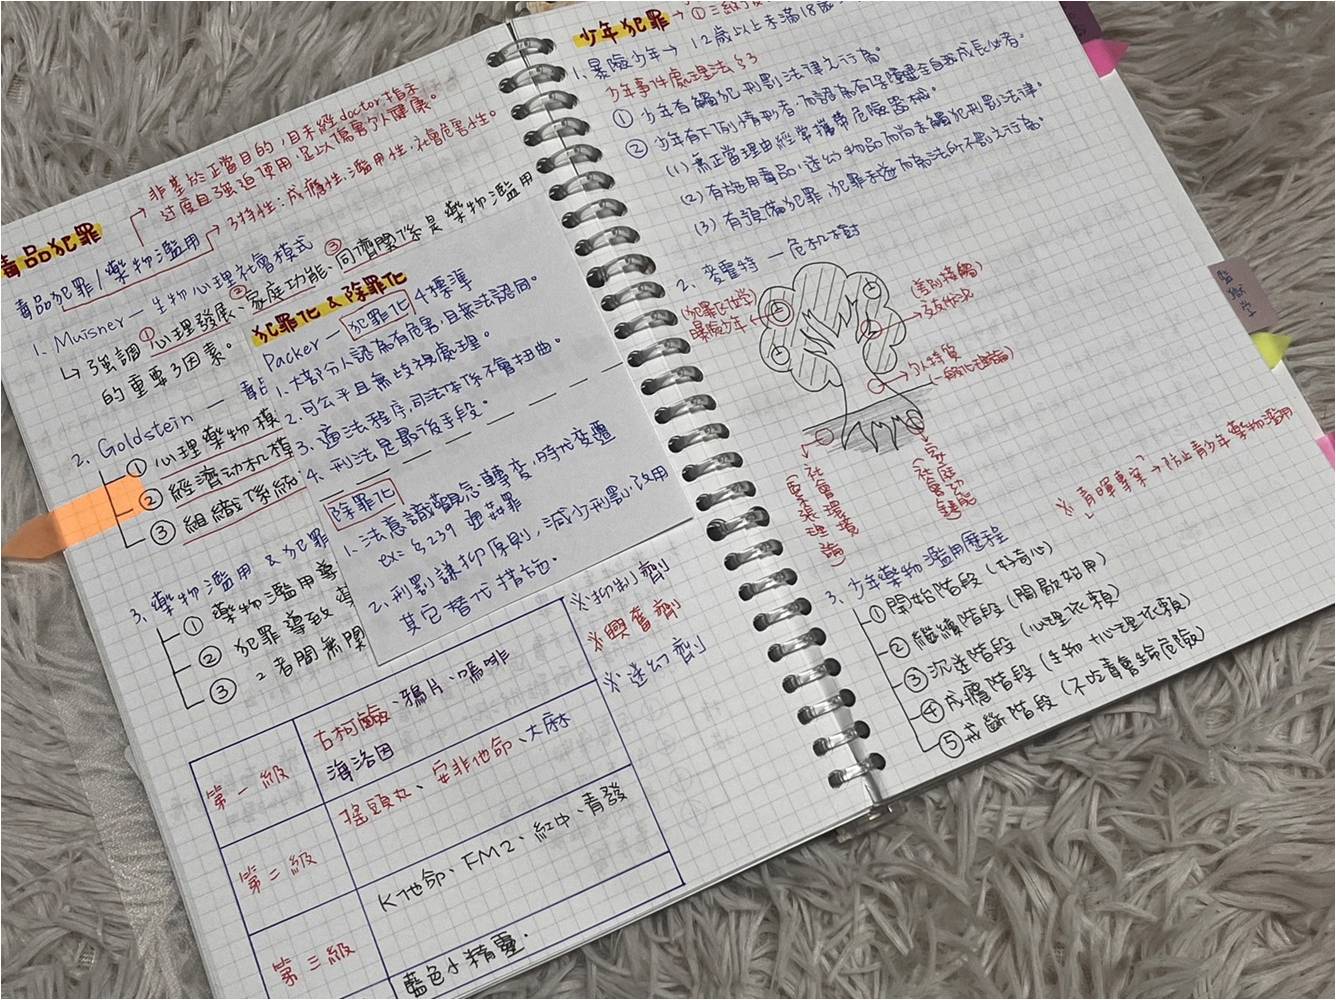 毒品犯罪
非基於正當目的,且未經doctor指示
過度且強迫使用,足以傷害个人健康。
毒品犯罪/藥物濫用
3特性:成癮性、濫用性、社會危害性。
1. Muisner — 生物心理社會模式
↳ 強調①心理發展、②家庭功能、③同儕關係是藥物濫用
的重要3因素。
2. Goldstein —
① 心理藥物模
② 經濟动机模
③ 組織係統
3. 藥物濫用 & 犯罪
① 藥物濫用導
② 犯罪導致
③ 2者間無関
犯罪化 & 除罪化
Packer — 犯罪化 4標準
1. 大部分人認為有危害,且無法認同。
2. 可公平且無歧視處理。
3. 適法程序,司法体係不會扭曲。
4. 刑法是最後手段。
除罪化
1. 法意識觀念轉變,時代变遷
ex: §239 通姦罪
2. 刑罰謙抑原則,減少刑罰,改用
其它替代措施。
※抑制劑
※興奮劑
※迷幻劑
第一級
古柯鹼、鴉片、嗎啡
海洛因
第二級
搖頭丸、安非他命、大麻
第三級
K他命、FM2、紅中、青發
藍色小精靈.
少年犯罪 → ①三級
1. 暴險少年 → 12歲以上未滿18歲
少年事件處理法§3
① 少年有觸犯刑罰法律之行為。
② 少年有下列情形者,而認為有保障健全自我成長必者。
(1) 無正當理由經常攜帶危險器械。
(2) 有施用毒品,迷幻物品而尚未觸犯刑罰法律。
(3) 有預備犯罪、犯罪未遂而為法所不罰之行為。
2. 麥霍特 — 危机樹
暴險少年
(差別接觸)
个人特質
(一般化理論)
社會環境
※「青暉專案」→防止青少年藥物濫用
3. 少年藥物濫用歷程
① 開始階段 (好奇心)
② 繼續階段 (間歇始用)
③ 沉迷階段 (心理依賴)
④ 成癮階段 (生物+心理依賴)
⑤ 戒斷階段 (不吃有生命危險)
監獄学